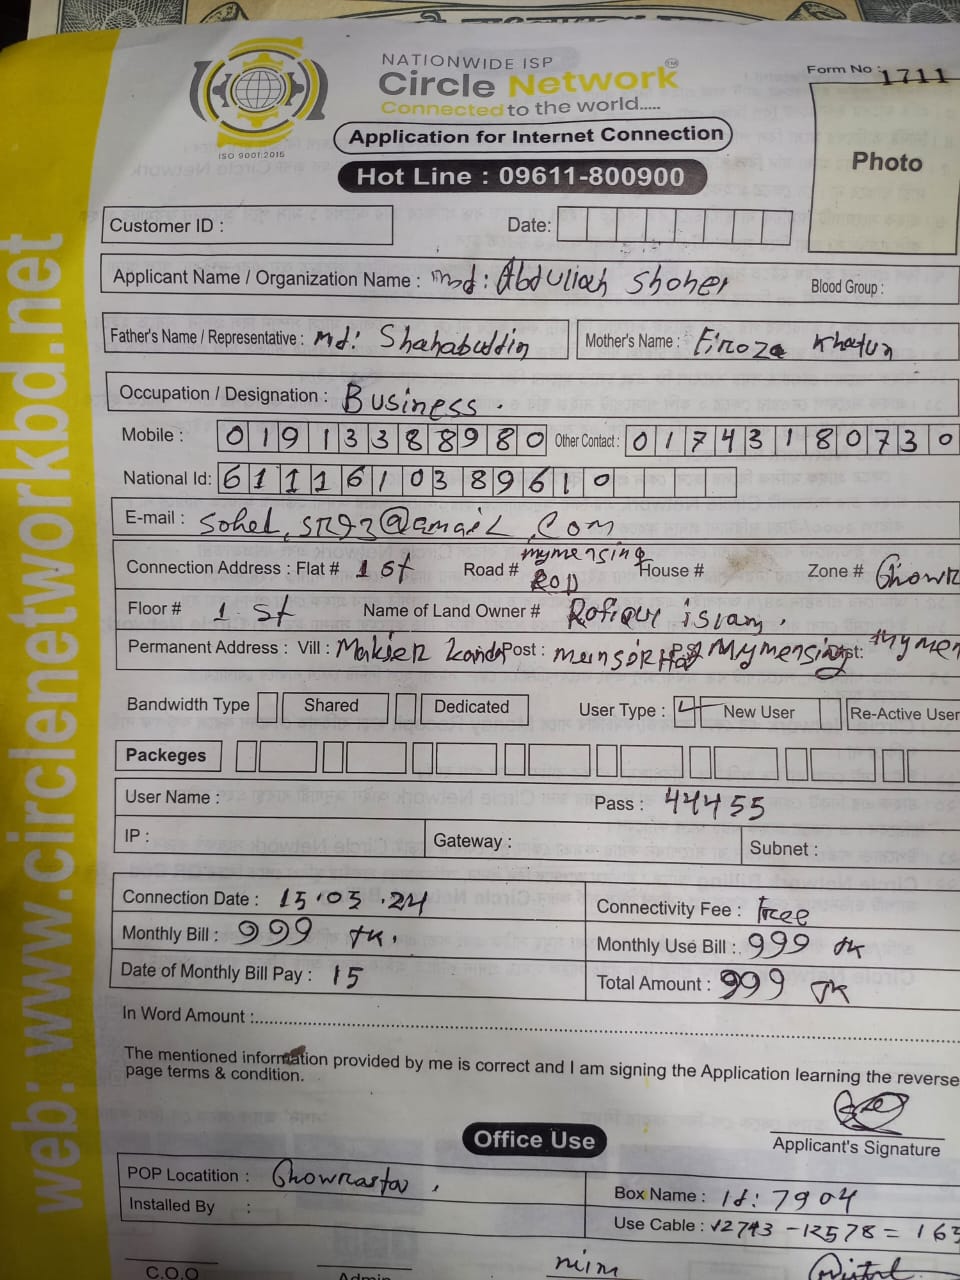 NATIONWIDE ISP
Circle Network™
Connected to the world.....
ISO 9001:2015
Form No : 1711
Application for Internet Connection
Hot Line : 09611-800900
Photo
Customer ID :
Date:
Applicant Name / Organization Name : Md: Abdullah Shoher
Blood Group :
Father's Name / Representative : Md: Shahabuddin
Mother's Name : Firoza Khatun
Occupation / Designation : Business.
Mobile : 01913388980 Other Contact : 01743180730
National Id: 6111610389610
E-mail : Sohel.SR93@gmail.com
Connection Address : Flat # 1st Road # mymensing Rod House # Zone #
Floor # 1st Name of Land Owner # Rofiqul islam.
Permanent Address : Vill : Post : Mymensing
Bandwidth Type Shared Dedicated User Type : New User Re-Active User
Packeges
User Name : Pass : 44455
IP : Gateway : Subnet :
Connection Date : 15.03.24 Connectivity Fee : Free
Monthly Bill : 999 TK. Monthly Use Bill : 999 TK
Date of Monthly Bill Pay : 15 Total Amount : 999 TK
In Word Amount :
The mentioned information provided by me is correct and I am signing the Application learning the reverse
page terms & condition.
Applicant's Signature
Office Use
POP Locatition : Chowrasta,
Box Name : Id: 7904
Installed By :
Use Cable : 12743 - 12578 = 165
mim
C.O.O
Admin
web: www.circlenetworkbd.net